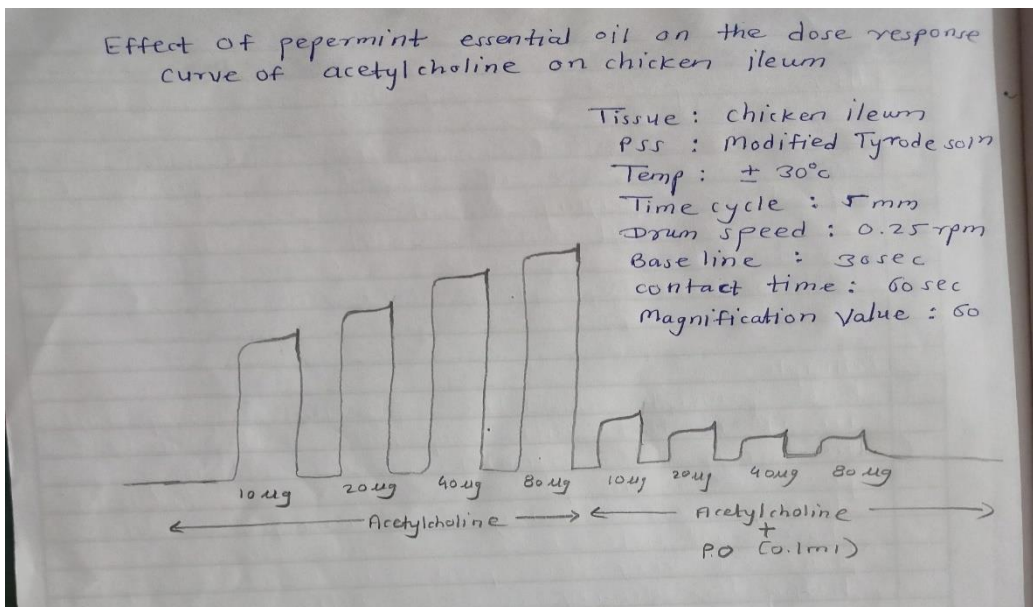 Effect of pepermint essential oil on the dose response
curve of acetylcholine on chicken ileum
Tissue : chicken ileum
PSS : Modified Tyrode soln
Temp : ± 30°c
Time cycle : 5mm
Drum speed : 0.25 rpm
Base line : 30sec
contact time : 60 sec
Magnification Value : 60
10 µg 20 µg 40 µg 80 µg 10 µg 20 µg 40 µg 80 µg
Acetylcholine Acetylcholine
+
P.O (0.1ml)